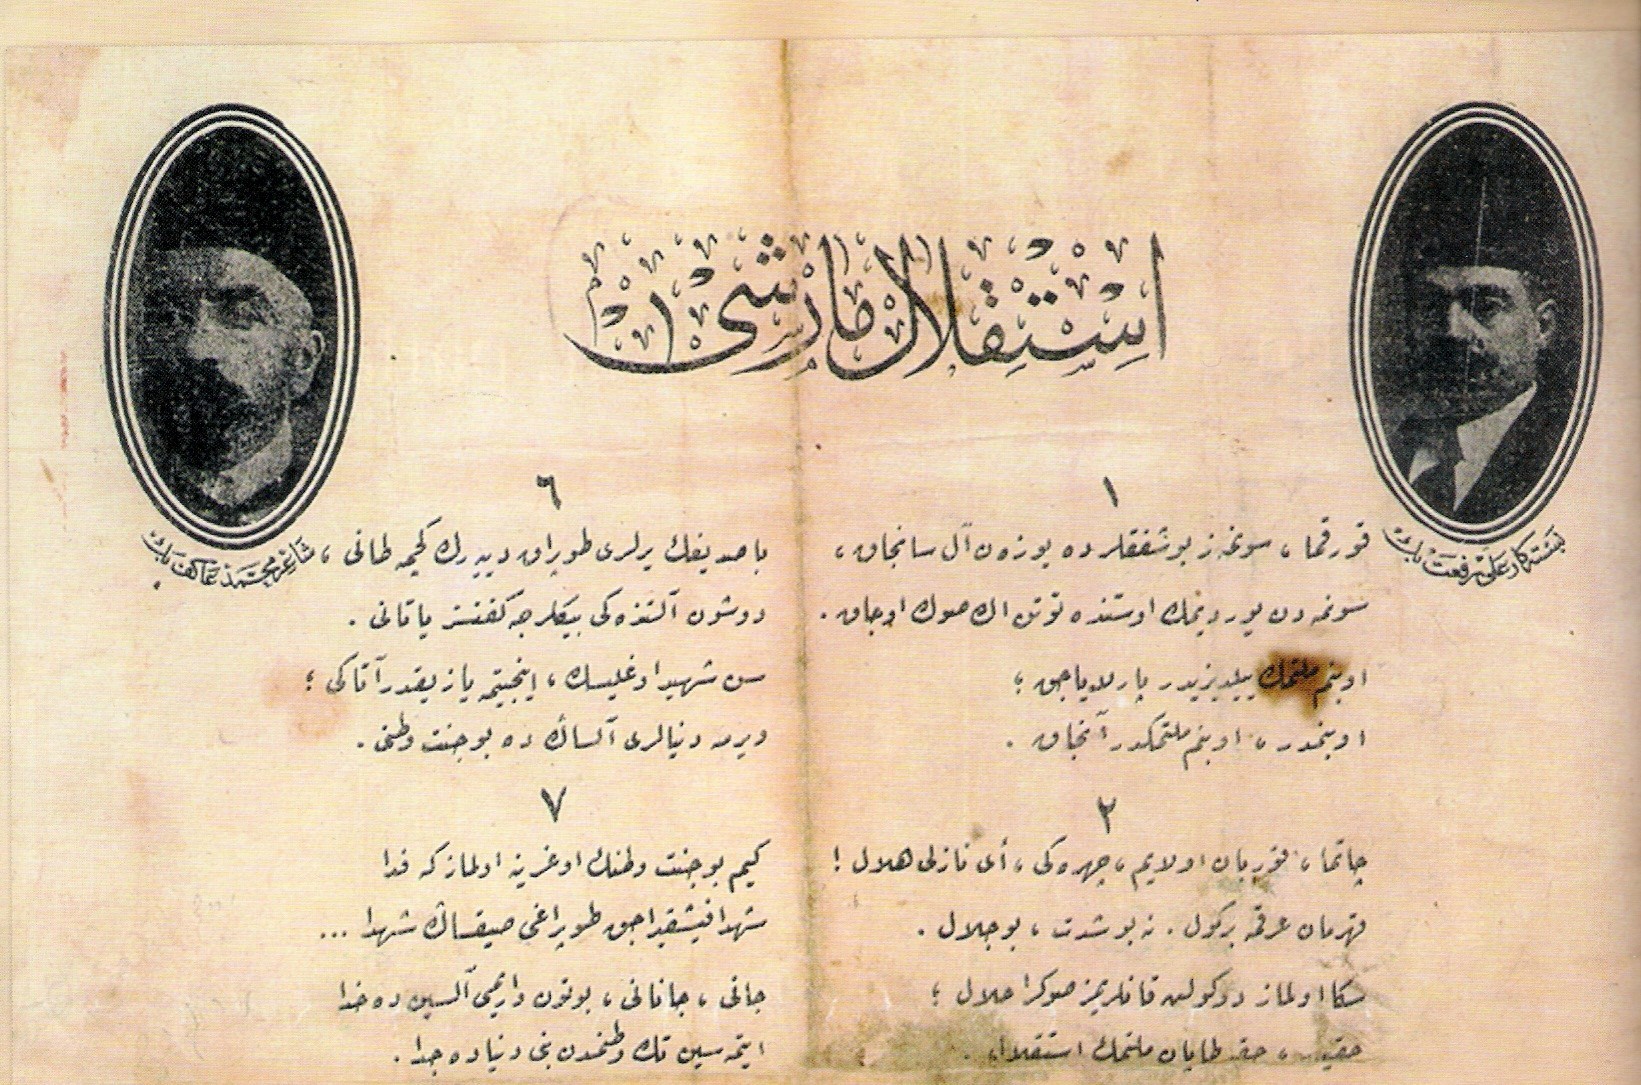 استقلال مارشی
بسته‌كار علی رفعت بك
شاعر محمد عاكف بك
١
قورقما ، سونمز بو شفقلرده یوزه‌ن آل سانجاق ،
سونمه‌دن یوردیمك اوستنده توتن اك صوك اوجاق .
او بنم ملتمك ییلدیزیدر پارلایاجق ؛
او بنمدر ، او بنم ملتمكدر آنجاق .
٢
چاتما ، قوربان اولایم ، چهره‌كی ، أی نازلی هلال !
قهرمان عرقمه بر كول . نه بو شدت ، بو جلال .
سكا اولماز دوكولن قانلریمز صوكرا حلال ؛
حقیدر ، حقه طاپان ملتمك استقلال .
٦
باصدیغك یرلری طوپراق دییه‌رك كچمه طانی ،
دوشون آلتنده‌كی بیكلرجه كفنسز یاتانی .
سن شهید اوغلیسك ، اینجیتمه یازیقدر آتاكی ؛
ویرمه دنیالری آلساڭ ده بو جنت وطنی .
٧
كیم بو جنت وطنك اوغرینه اولماز كه فدا
شهدا فیشقیراجق طوپراغی صیقساڭ شهدا ...
جانی ، جانانی ، بوتون واریمی آلسین ده خدا
ایتمه‌سین تك وطنمدن بنی دنیاده جدا .